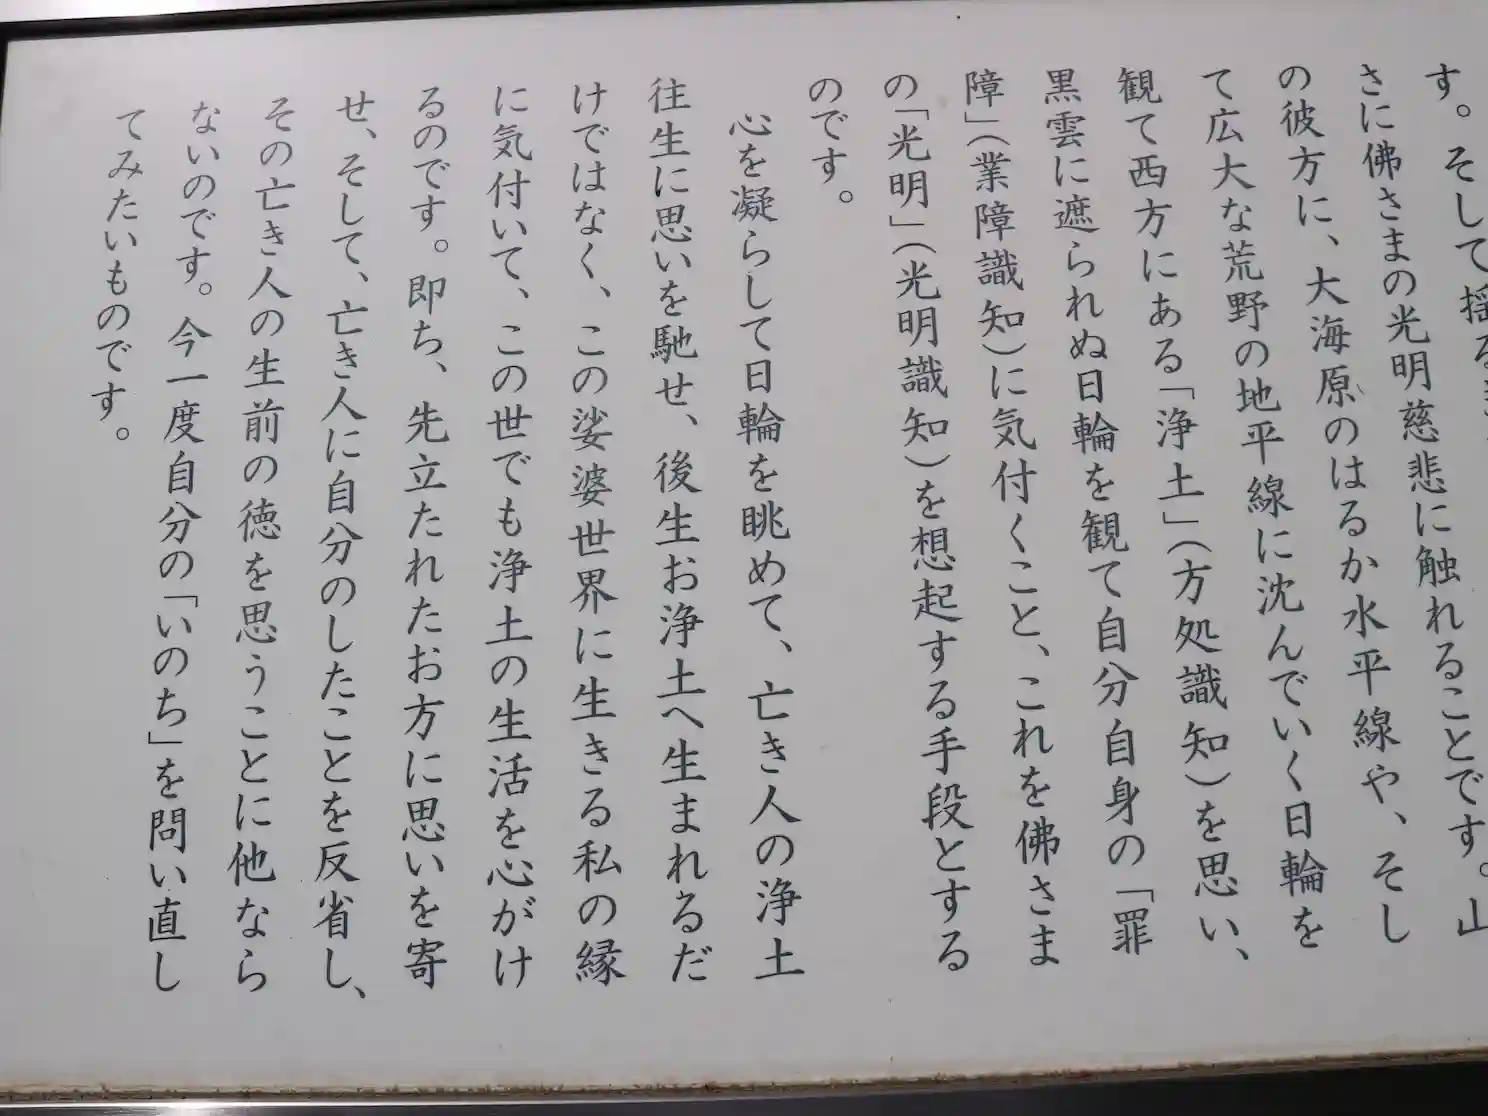 す。そして揺る
さに佛さまの光明慈悲に触れることです。山
の彼方に、大海原のはるか水平線や、そし
て広大な荒野の地平線に沈んでいく日輪を
観て西方にある「浄土」（方処識知）を思い、
黒雲に遮られぬ日輪を観て自分自身の「罪
障」（業障識知）に気付くこと、これを佛さま
の「光明」（光明識知）を想起する手段とする
のです。
心を凝らして日輪を眺めて、亡き人の浄土
往生に思いを馳せ、後生お浄土へ生まれるだ
けではなく、この娑婆世界に生きる私の縁
に気付いて、この世でも浄土の生活を心がけ
るのです。即ち、先立たれたお方に思いを寄
せ、そして、亡き人に自分のしたことを反省し、
その亡き人の生前の徳を思うことに他なら
ないのです。今一度自分の「いのち」を問い直し
てみたいものです。